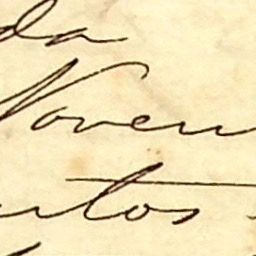 da
Novem
entos